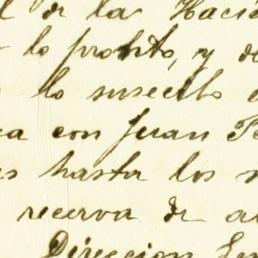 l de la Haci
lo pronto, y de
lo suscrito
a con Juan Pe
s hasta los
recerva de a
Direccion Gen